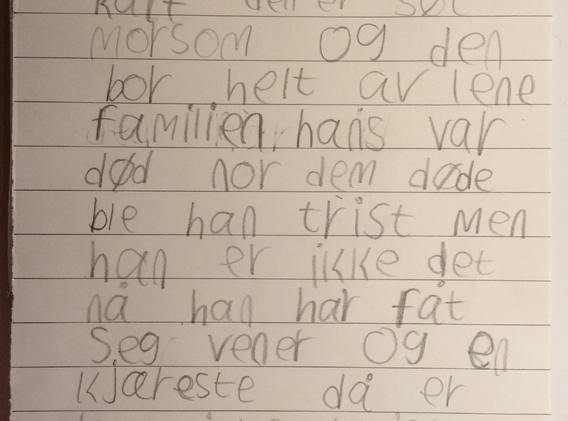 kalt den er søt
morsom og den
bor helt av lene
familien hans var
død nor dem døde
ble han trist men
han er ikke det
nå han har fåt
seg vener og en
kjæreste då er